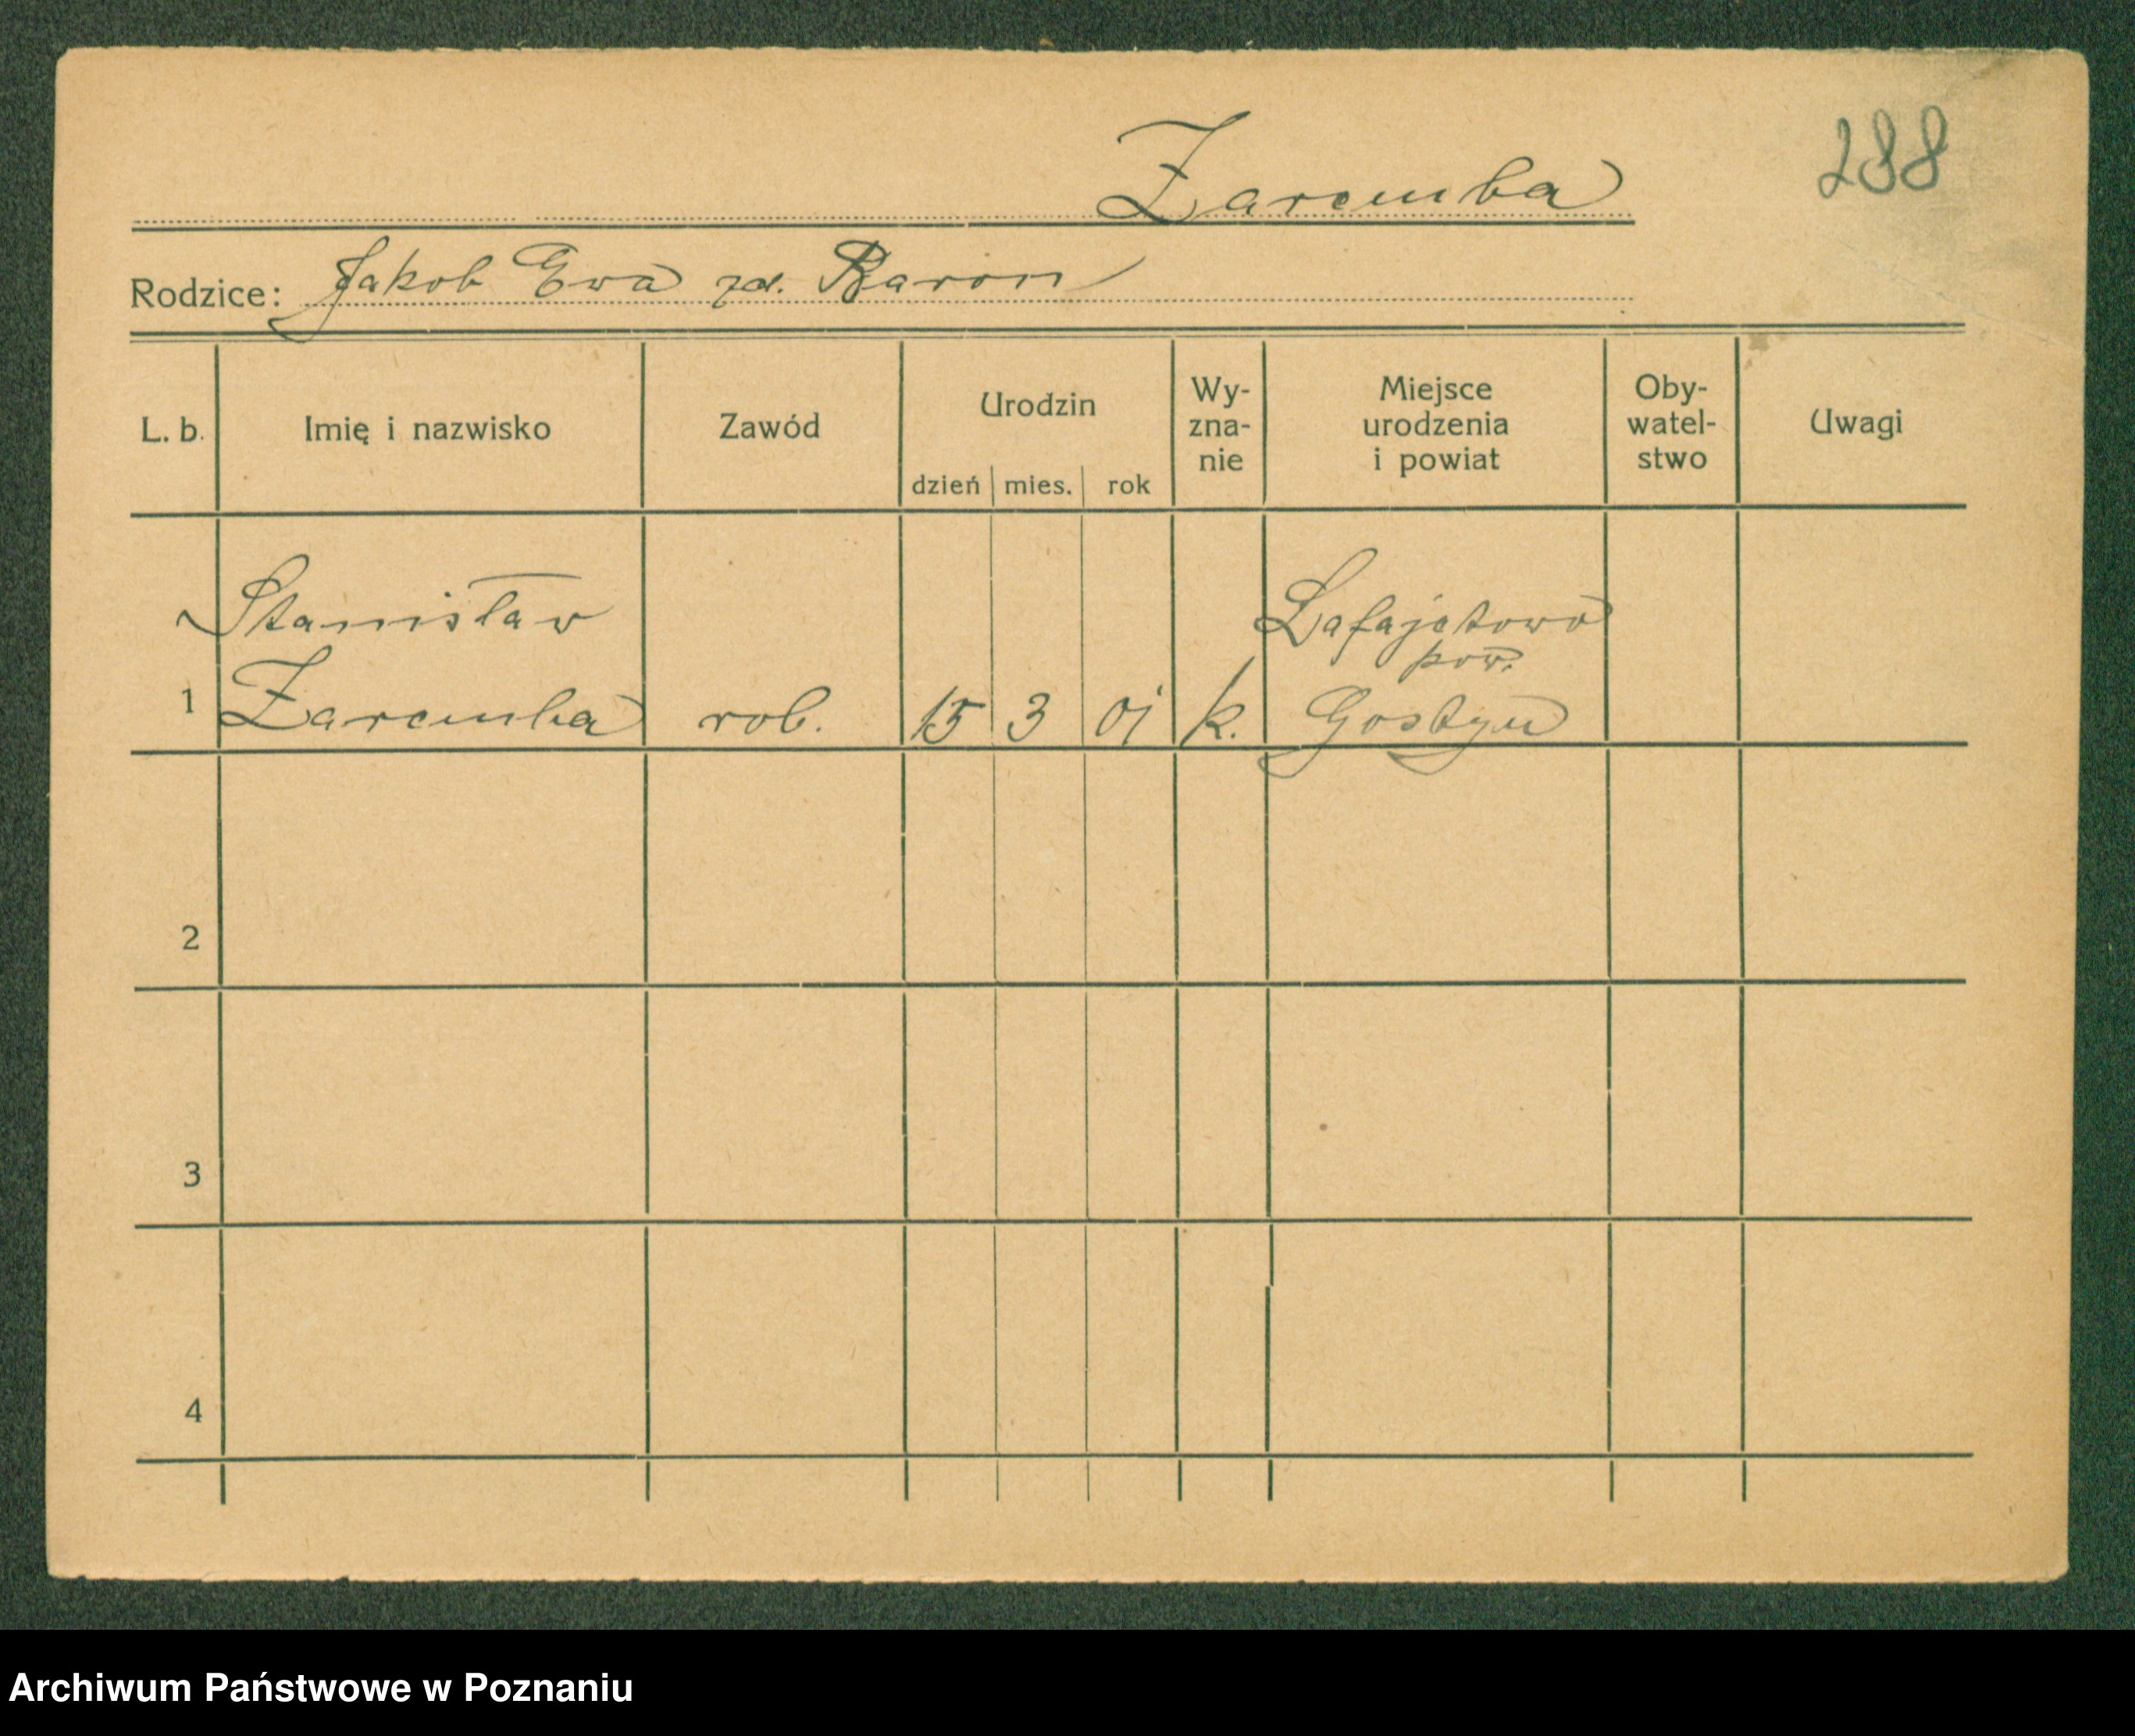 288
Zaremba
Rodzice: Jakob Ewa zd. Baron
L. b. Imię i nazwisko Zawód Urodzin dzień mies. rok Wy-zna-nie Miejsce urodzenia i powiat Oby-watel-stwo Uwagi
Stanisław Lafajetowo
pow.
1 Zaremba rob. 15 3 01 k. Gostyn
2
3
4
Archiwum Państwowe w Poznaniu